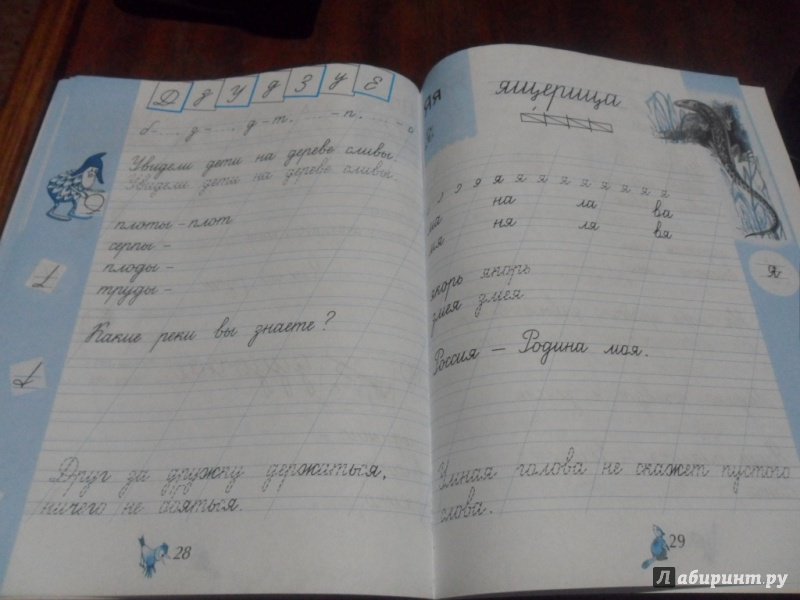 Д д У д З у Е
б- з- д-т п о
Увидели дети на дереве сливы.
Увидели дети на дереве сливы.
плоты - плот
серпы -
плоды -
труды -
Какие реки вы знаете?
Друг за дружку держаться,
ничего не бояться.
28
ящерица
я я я я я я я я я
на ла ва
ня ля вя
Я
якорь якорь
змея змея
Россия — Родина моя.
Умная голова не скажет пустого
слова.
29
Лабиринт.ру